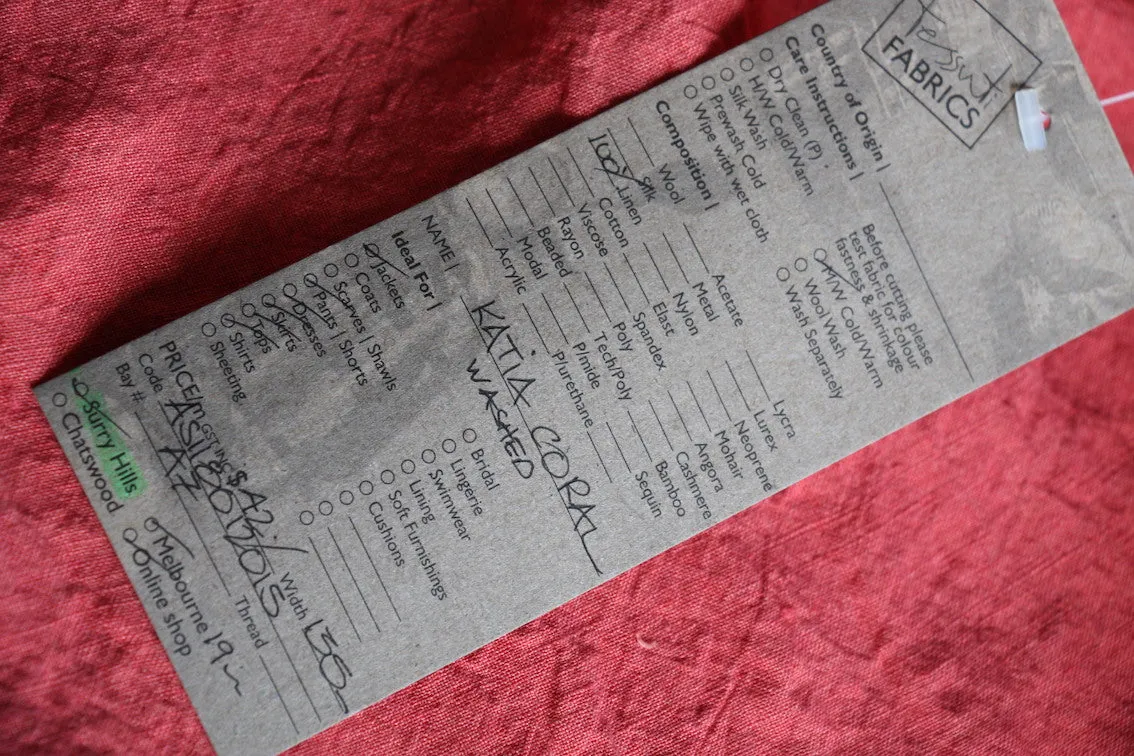 Tessuti
FABRICS
Country of Origin |
Care Instructions |
Dry Clean (P)
H/W Cold/Warm
Silk Wash
Prewash Cold
Wipe with wet cloth
Before cutting please
test fabric for colour
fastness & shrinkage
M/W Cold/Warm
Wool Wash
Wash Separately
Composition |
Wool
Silk
100% Linen
Cotton
Viscose
Rayon
Beaded
Modal
Acrylic
Acetate
Metal
Nylon
Elast
Spandex
Poly
Tech/Poly
P/mide
P/urethane
Lycra
Lurex
Neoprene
Mohair
Angora
Cashmere
Bamboo
Sequin
NAME | KATIA CORAL
WASHED
Ideal For |
Jackets
Coats
Scarves | Shawls
Pants | Shorts
Dresses
Skirts
Tops
Shirts
Sheeting
Bridal
Lingerie
Swimwear
Lining
Soft Furnishings
Cushions
PRICE/m GST INC $
Width 135
Code
Thread
Bay #
Surry Hills
Chatswood
Melbourne
Online shop